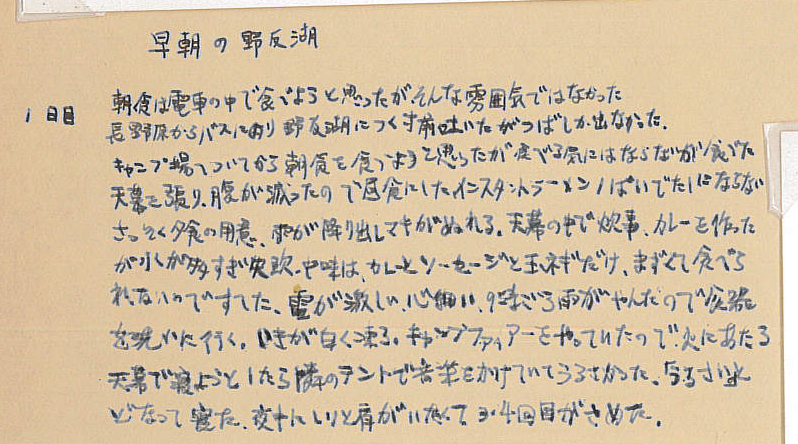 早朝の野反湖
1日目 朝食は電車の中で食べようと思ったが、そんな雰囲気ではなかった
長野原からバスにのり野反湖につく寸前吐いたがつばしか出なかった。
キャンプ場へついてから朝食を食べようと思ったが食べる気にはならないが食べた
天幕を張り、腹が減ったので昼食にしたインスタントラーメン1ぱいでたしにならない
さっそく夕食の用意、雨が降り出しマキがぬれる。天幕の中で炊事、カレーを作った
が水が多すぎ失敗、中味は、カレーとソーセージと玉ネギだけ、まずくて食べら
れないのですてた、雷が激しい、心細い、9時ごろ雨がやんだので食器
を洗いに行く。いきが白く凍る。キャンプファイアーをやっていたので火にあたる
天幕で寝ようとしたら隣のテントで音楽をかけていてうるさかった、うるさい
どなって寝た、夜中にしりと肩がいたくて3・4回目がさめた。